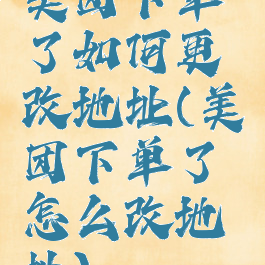 美团下单
了如何更
改地址(美
团下单了
怎么改地
址)